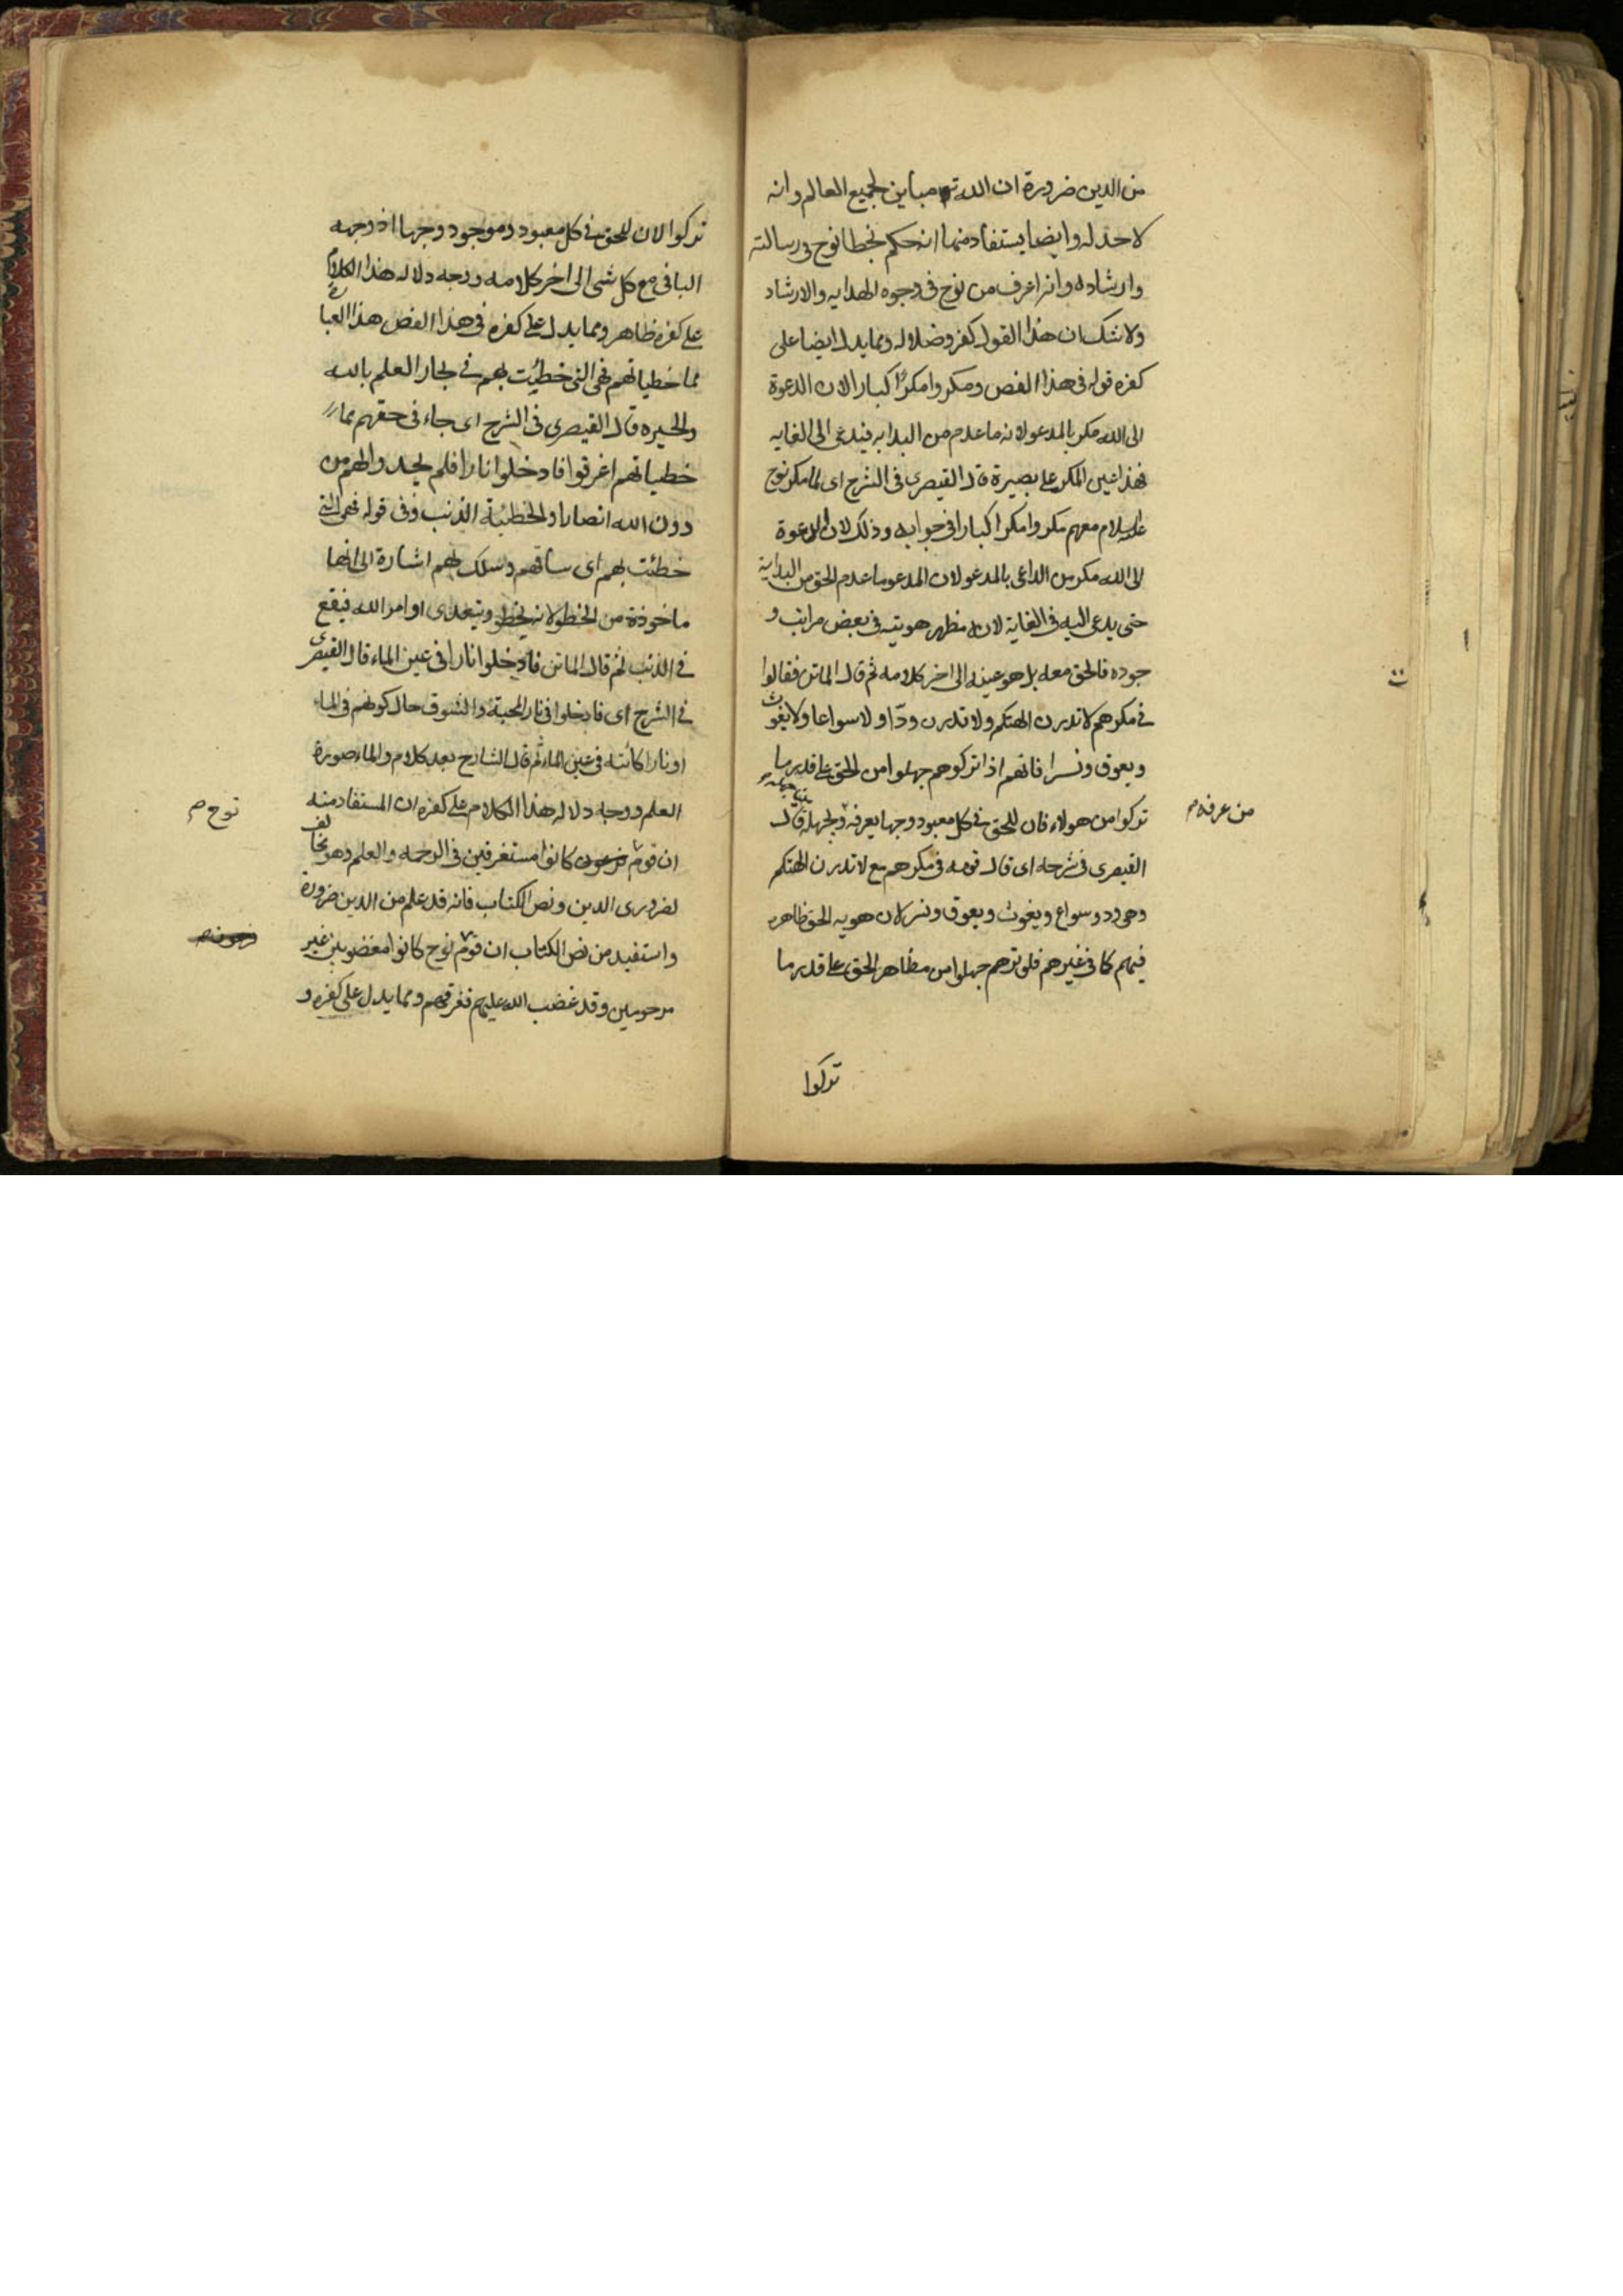 من الدين ضرورة ان الله تع مباين لجميع العالم وانه
لا حد له وايضا يستفاد منها انه حكم بخطا نوح فى رسالته
وارشاده وانه اعرف من نوح فى وجوه الهدايه والارشاد
ولا شك ان هذا القول كفر وضلاله ومما يدل ايضا على
كفره قوله فى هذا الفص ومكروا مكرًا كبارا لان الدعوة
الى الله مكر بالمدعو لانه ما عدم من البدايه فيدعى الى الغايه
فهذا عين المكر على بصيرة قال القيصرى فى الشرح اى لما مكر نوح
عليه السلام معهم مكروا مكرا كبارا فى جوابه وذلك لان الدعوة
الى الله مكر من الداعى بالمدعو لان المدعو ما عدم الحق من البداية
حتى يدعى اليه فى الغاية لانه مظهر هويته فى بعض مراتب و
جوده فالحق معه بل هو عينه الى اخر كلامه ثم قال الماتن فقالوا
فى مكرهم لا تذرن الهتكم ولا تذرن ودّا ولا سواعا ولا يغوث
ويعوق ونسرا فانهم اذا تركوهم جهلوا من الحق على قدر ما
تركوا من هولاء فان للحق فى كل معبود وجها يعرفه ويجهله قال
من عرفه
القيصرى فى شرحه اى قال قومه فى مكرهم مع لا تذرن الهتكم
وهى ود وسواع ويغوث ويعوق ونسر لان هويه الحق ظاهره
فيهم كما فى غيرهم فلو تركهم جهلوا من مظاهر الحق على قدر ما
تركوا
تركوا لان للحق فى كل معبود وموجود وجها اذ وجهه
الباقى مع كل شى الى اخر كلامه ووجه دلاله هذا الكلام
على كفره ظاهر ومما يدل على كفره فى هذا الفص هذا العبارة
مما خطياتهم فهى التى خطيت بهم فى بحار العلم بالله
والحيره قال القيصرى فى الشرح اى جاء فى حقهم مما
خطياتهم اغرقوا فادخلوا نارا فلم يجدوا لهم من
دون الله انصارا والخطيئة الذنب وفى قوله فهى التى
خطئت بهم اى ساقهم وسلك بهم اشارة الى انها
ماخوذة من الخطو لانه يخطو ويتعدى اوامر الله فيقع
فى الذنب ثم قال الماتن فادخلوا نارا فى عين الماء قال القيصرى
فى الشرح اى فادخلوا فى نار المحبة والشوق حال كونهم فى الماء
او نارا كائنه فى عين الماء ثم قال الشارح بعد كلام والماء صورة
العلم ووجه دلاله هذا الكلام على كفره ان المستفاد منه
نوح م
ان قوم فرعون كانوا مستغرقين فى الرحمه والعلم وهو مخالف
لضرورى الدين ونص الكتاب فانه قد علم من الدين ضرورة
واستفيد من نص الكتاب ان قوم نوح كانوا مغضوبين غير
مرحومين وقد غضب الله عليهم فغرقهم ومما يدل على كفره و